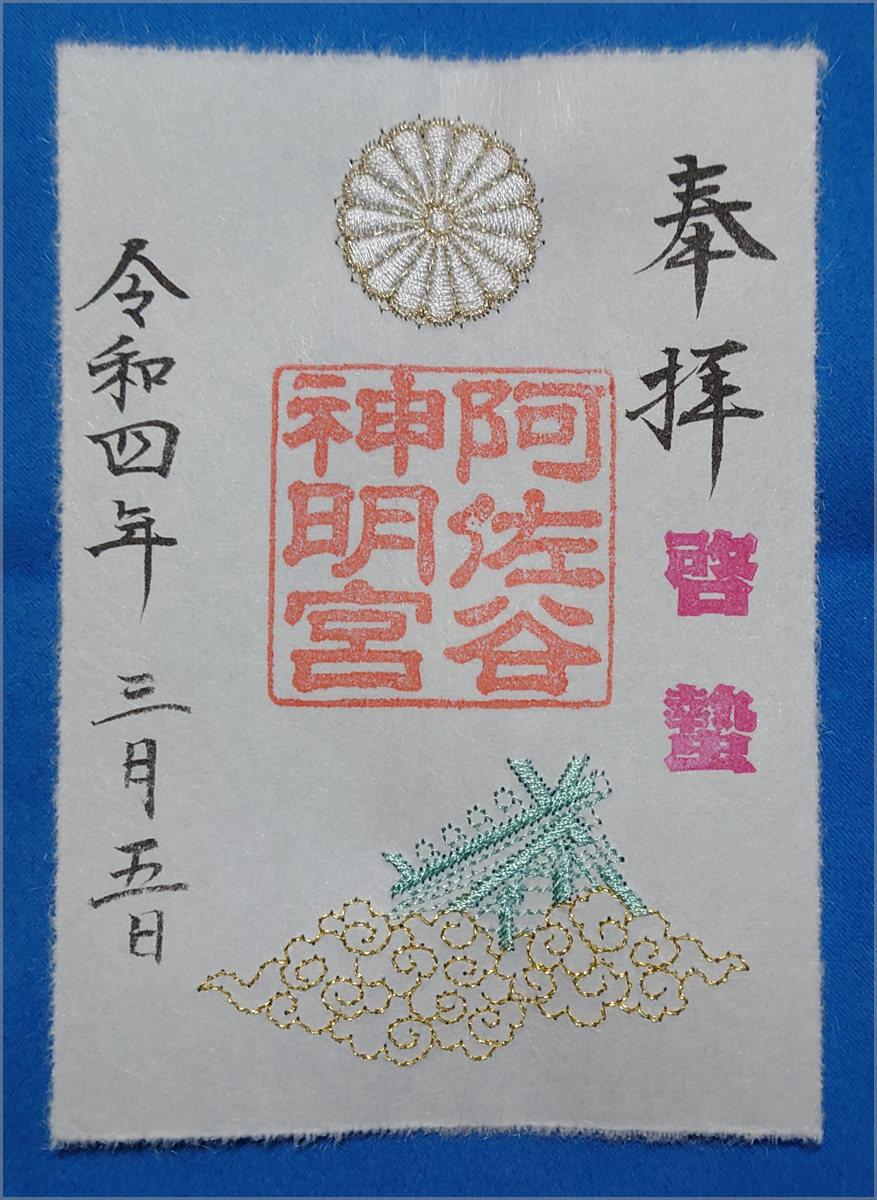 奉拝
啓蟄
阿佐谷
神明宮
令和四年 三月五日